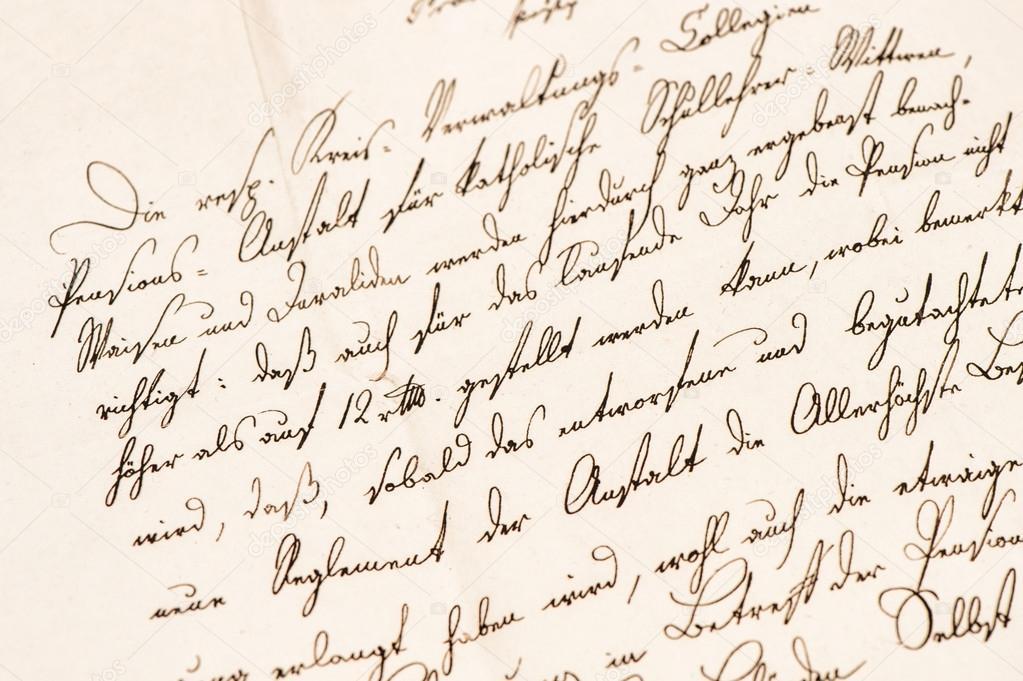 Die resp. Kreis- Verwaltungs- Collegien
Pensions- Anstalt für katholische Schullehrer- Wittwen,
Waisen und Invaliden werden hierdurch ganz ergebenst benach-
richtigt: daß auch für das laufende Jahr die Pension nicht
höher als auf 12 rthlr. gestellt werden kann, wobei bemerkt
wird, daß, sobald das entworfene und begutachtete
neue Reglement der Anstalt die Allerhöchste Bes
ung erlangt haben wird, wohl auch die etwaige
in Betreff der Pension
den Selbst